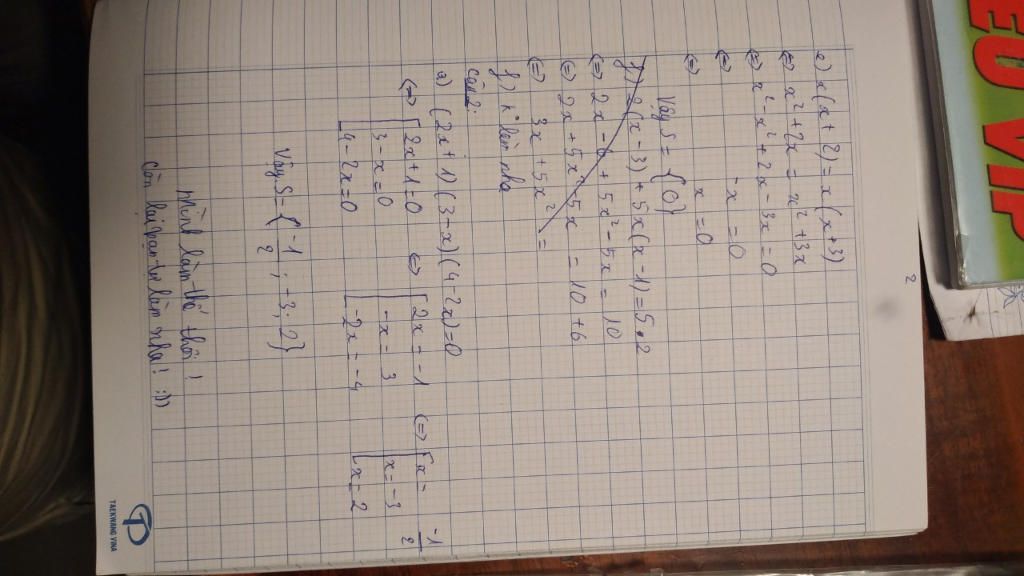 2
e) x(x+2) = x(x+3)
⇔ x² + 2x = x² + 3x
⇔ x² - x² + 2x - 3x = 0
⇔ -x = 0
⇔ x = 0
Vậy S = {0}
f) 2(x-3) + 5x(x-1) = 5.2
⇔ 2x - 6 + 5x² - 5x = 10
⇔ 2x + 5x² - 5x = 10 + 6
⇔ 3x + 5x² =
f) k làm nha
Câu 2:
a) (2x+1)(3-x)(4-2x)=0
⇔ [2x+1=0 ⇔ [2x = -1 ⇔ [x = -1/2
[3-x=0 [-x = 3 [x = -3
[4-2x=0 [-2x = -4 [x = 2
Vậy S = {-1/2; -3; 2}
Mình làm thế thôi!
Còn lại bạn tự làm nha! :))
TAEKWANG VINA
EO VIP